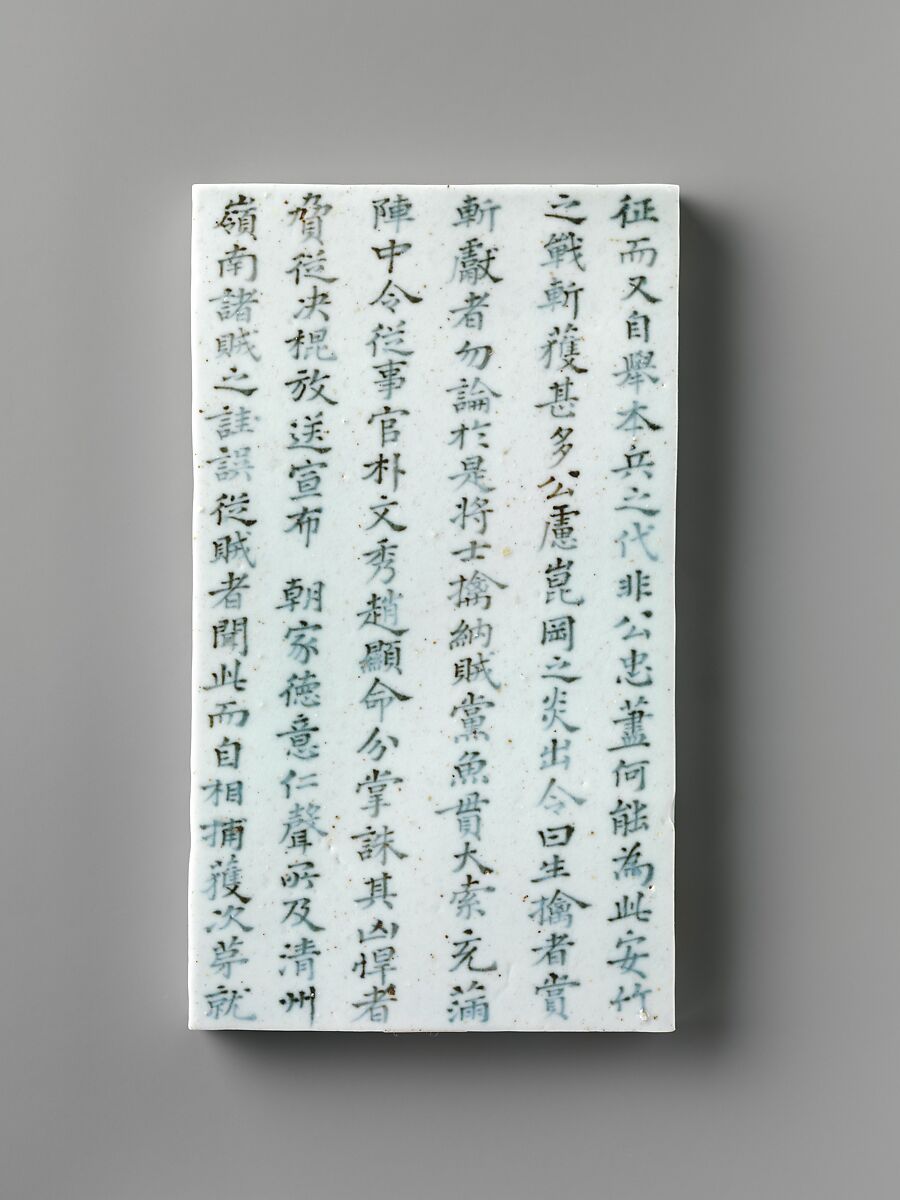 征而又自舉本兵之代非公忠藎何能為此安竹
之戰斬獲甚多公慮崑岡之炎出令曰生擒者賞
斬獻者勿論於是將士擒納賊黨魚貫大索充滿
陣中令從事官朴文秀趙顯命分掌誅其凶悍者
脅從决棍放送宣布 朝家德意仁聲所及清州
嶺南諸賊之詿誤從賊者聞此而自相捕獲次苐就